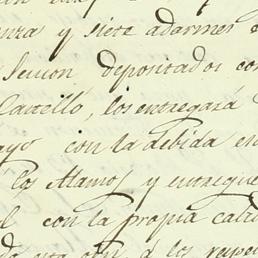 onza y siete adarmes
Seccion depositados con
Castelló, los entregará
con la debida en
los Alamos y entregue
con la propia cali